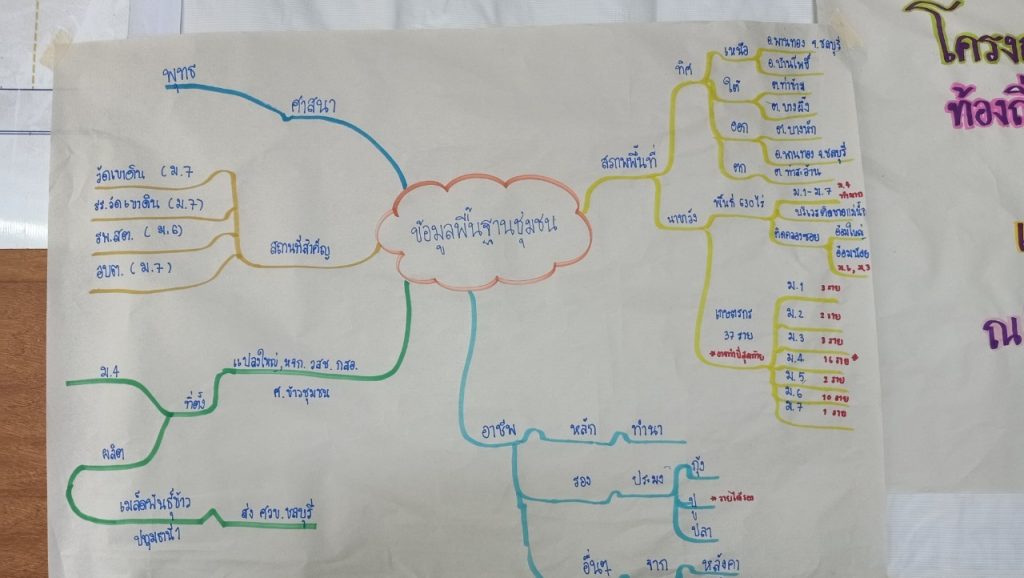 ข้อมูลพื้นฐานชุมชน
ศาสนา
พุทธ
สถานที่สำคัญ
วัดเขาดิน (ม.7
รร.วัดเขาดิน (ม.7)
รพ.สต. (ม.6)
อบต. (ม.7)
แปลงใหญ่, หจก. วสช. กสอ.
ศ.ข้าวชุมชน
ที่ตั้ง
ม.4
ผลิต
เมล็ดพันธุ์ข้าว
ปทุมธานี 1
ส่ง ศวข. ชลบุรี
อาชีพ
หลัก
ทำนา
รอง
ประมง
กุ้ง
ปู
*รายได้รอง
ปลา
อื่นๆ
จาก
หลังคา
สภาพพื้นที่
ทิศ
เหนือ
อ.พานทอง จ.ชลบุรี
อ.บ้านโพธิ์
ใต้
ต.ท่าข้าม
ต.บางผึ้ง
ออก
ต.บางหัก
อ.พานทอง จ.ชลบุรี
ตก
ต.ท่าสะอ้าน
พื้นที่ 630 ไร่
ม.1-ม.7
ม.4
ติดคลองซอย
อ้อมใหญ่
อ้อมน้อย
ม.2, ม.3
เกษตรกร
37 ราย
ม.1 3 ราย
ม.2 2 ราย
ม.3 3 ราย
ม.4 16 ราย*
ม.5 2 ราย
ม.6 10 ราย
ม.7 1 ราย
ท้องถิ่
ณ